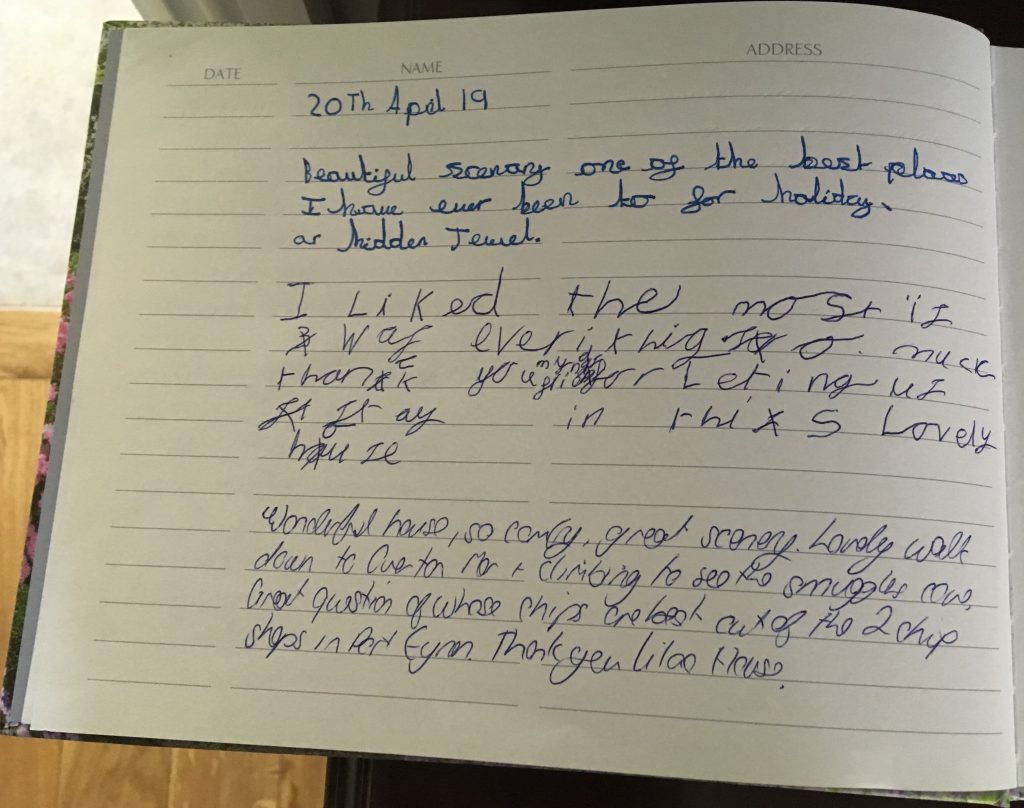 DATE NAME ADDRESS
20Th April 19
Beautiful scenary one of the best places
I have ever been to for holiday.
a hidden Jewel.
I Liked the most is
was everithig so muck
thank you for Leting us
stay in this Lovely
house
Wonderful house, so comfy, great scenery. Lovely walk
down to Overton Mor + climbing to see the smugglers cave.
Great question of whose chips are best out of the 2 chip
shops in Port Eynon. Thank you Lilac House.